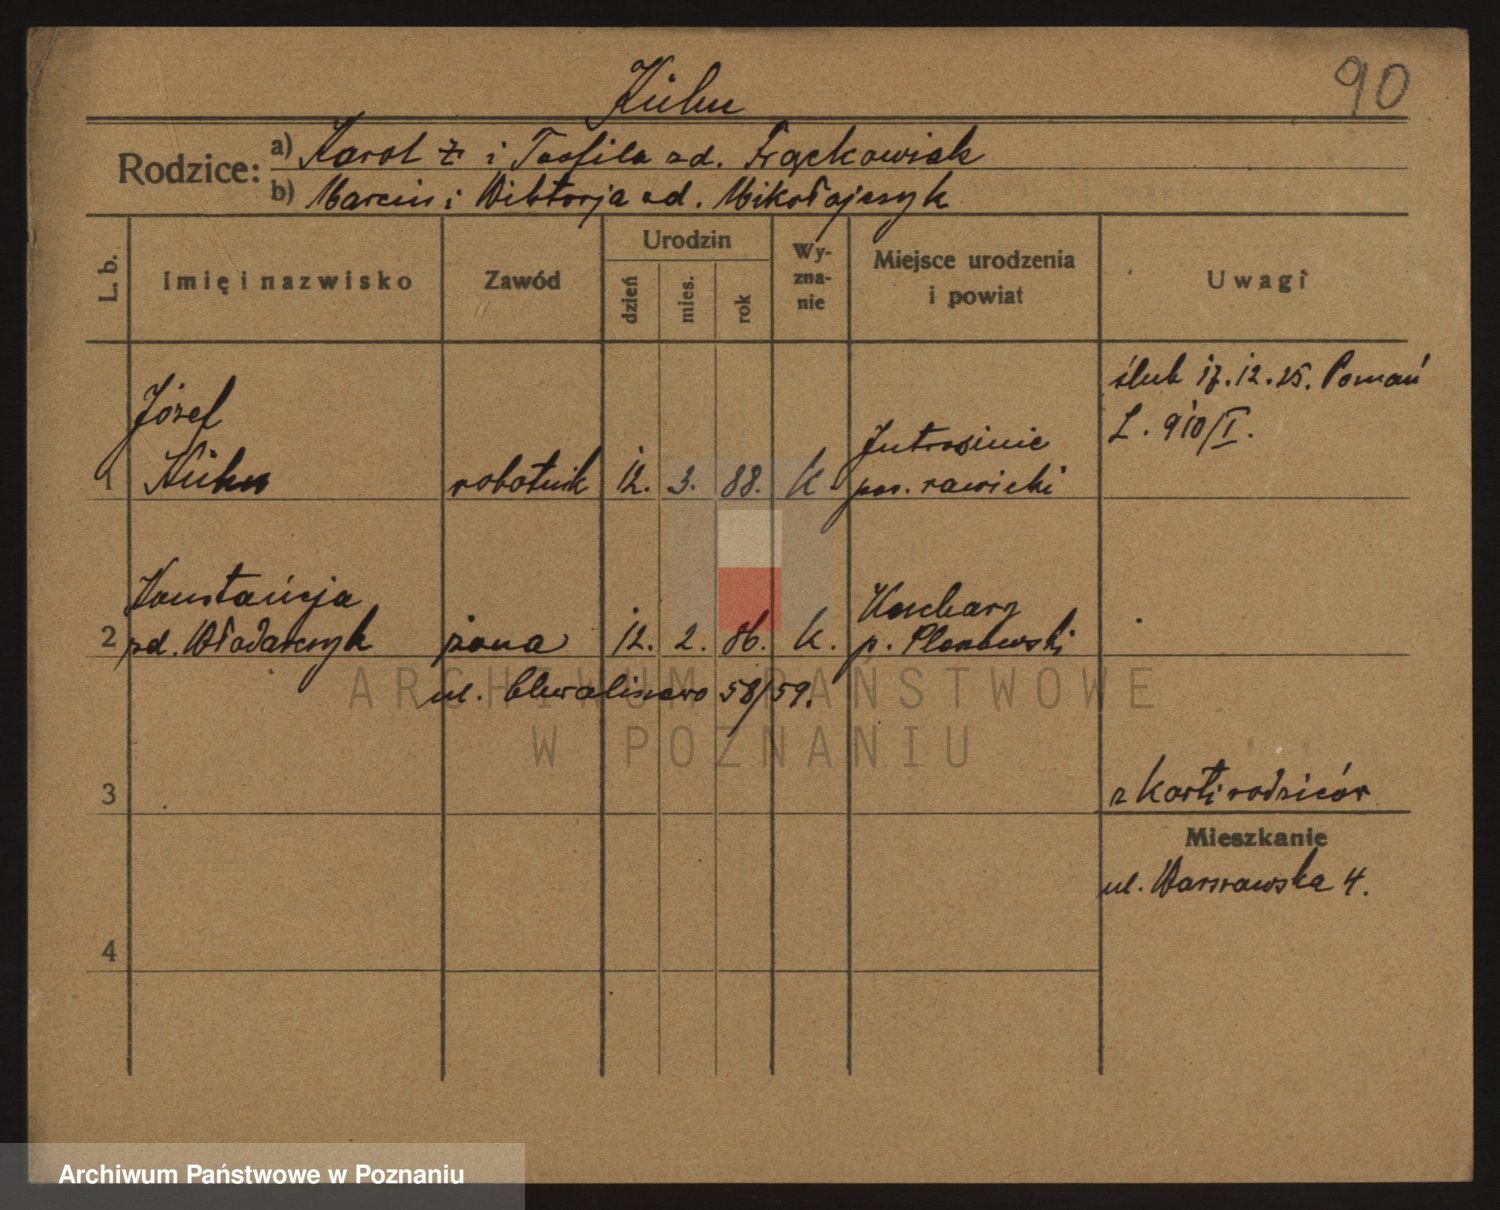 90
Kühn
Rodzice:
a) Karol ż i Teofila zd. Frąckowiak
b) Marcin i Wiktorja zd. Mikołajczyk
L. b.
Imię i nazwisko
Zawód
Urodzin
dzień
mies.
rok
Wy-
zna-
nie
Miejsce urodzenia
i powiat
Uwagi
ślub 17.12.25. Poznań
L. 910/I.
Józef
1 Kühn robotnik 12. 3. 88. K Jutrosinie
pow. rawicki
Konstancja
2 zd. Włodarczyk żona 12. 2. 86. K.
p. Pleszewski
ul. Chwaliszewo 58/59.
ARCHIWUM PAŃSTWOWE
W POZNANIU
3
z karty rodziców
Mieszkanie
ul. Warszawska 4.
4
Archiwum Państwowe w Poznaniu